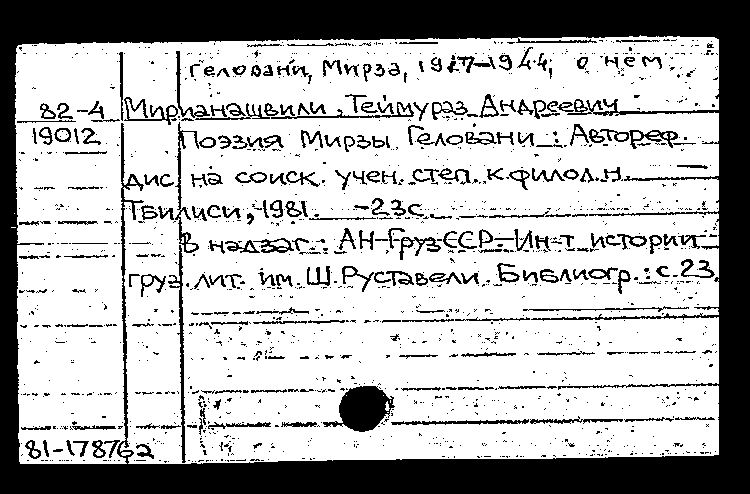 Геловани, Мирза, 1917-1944, о нем
82-4 Мирианашвили, Теймураз Андреевич
19012 Поэзия Мирзы Геловани : Автореф.
дис. на соиск. учен. степ. к.филол.н.
Тбилиси, 1981. -23с.
В надзаг.: АН ГрузССР. Ин-т истории
груз. лит. им. Ш. Руставели. Библиогр.: с.23.
81-17876